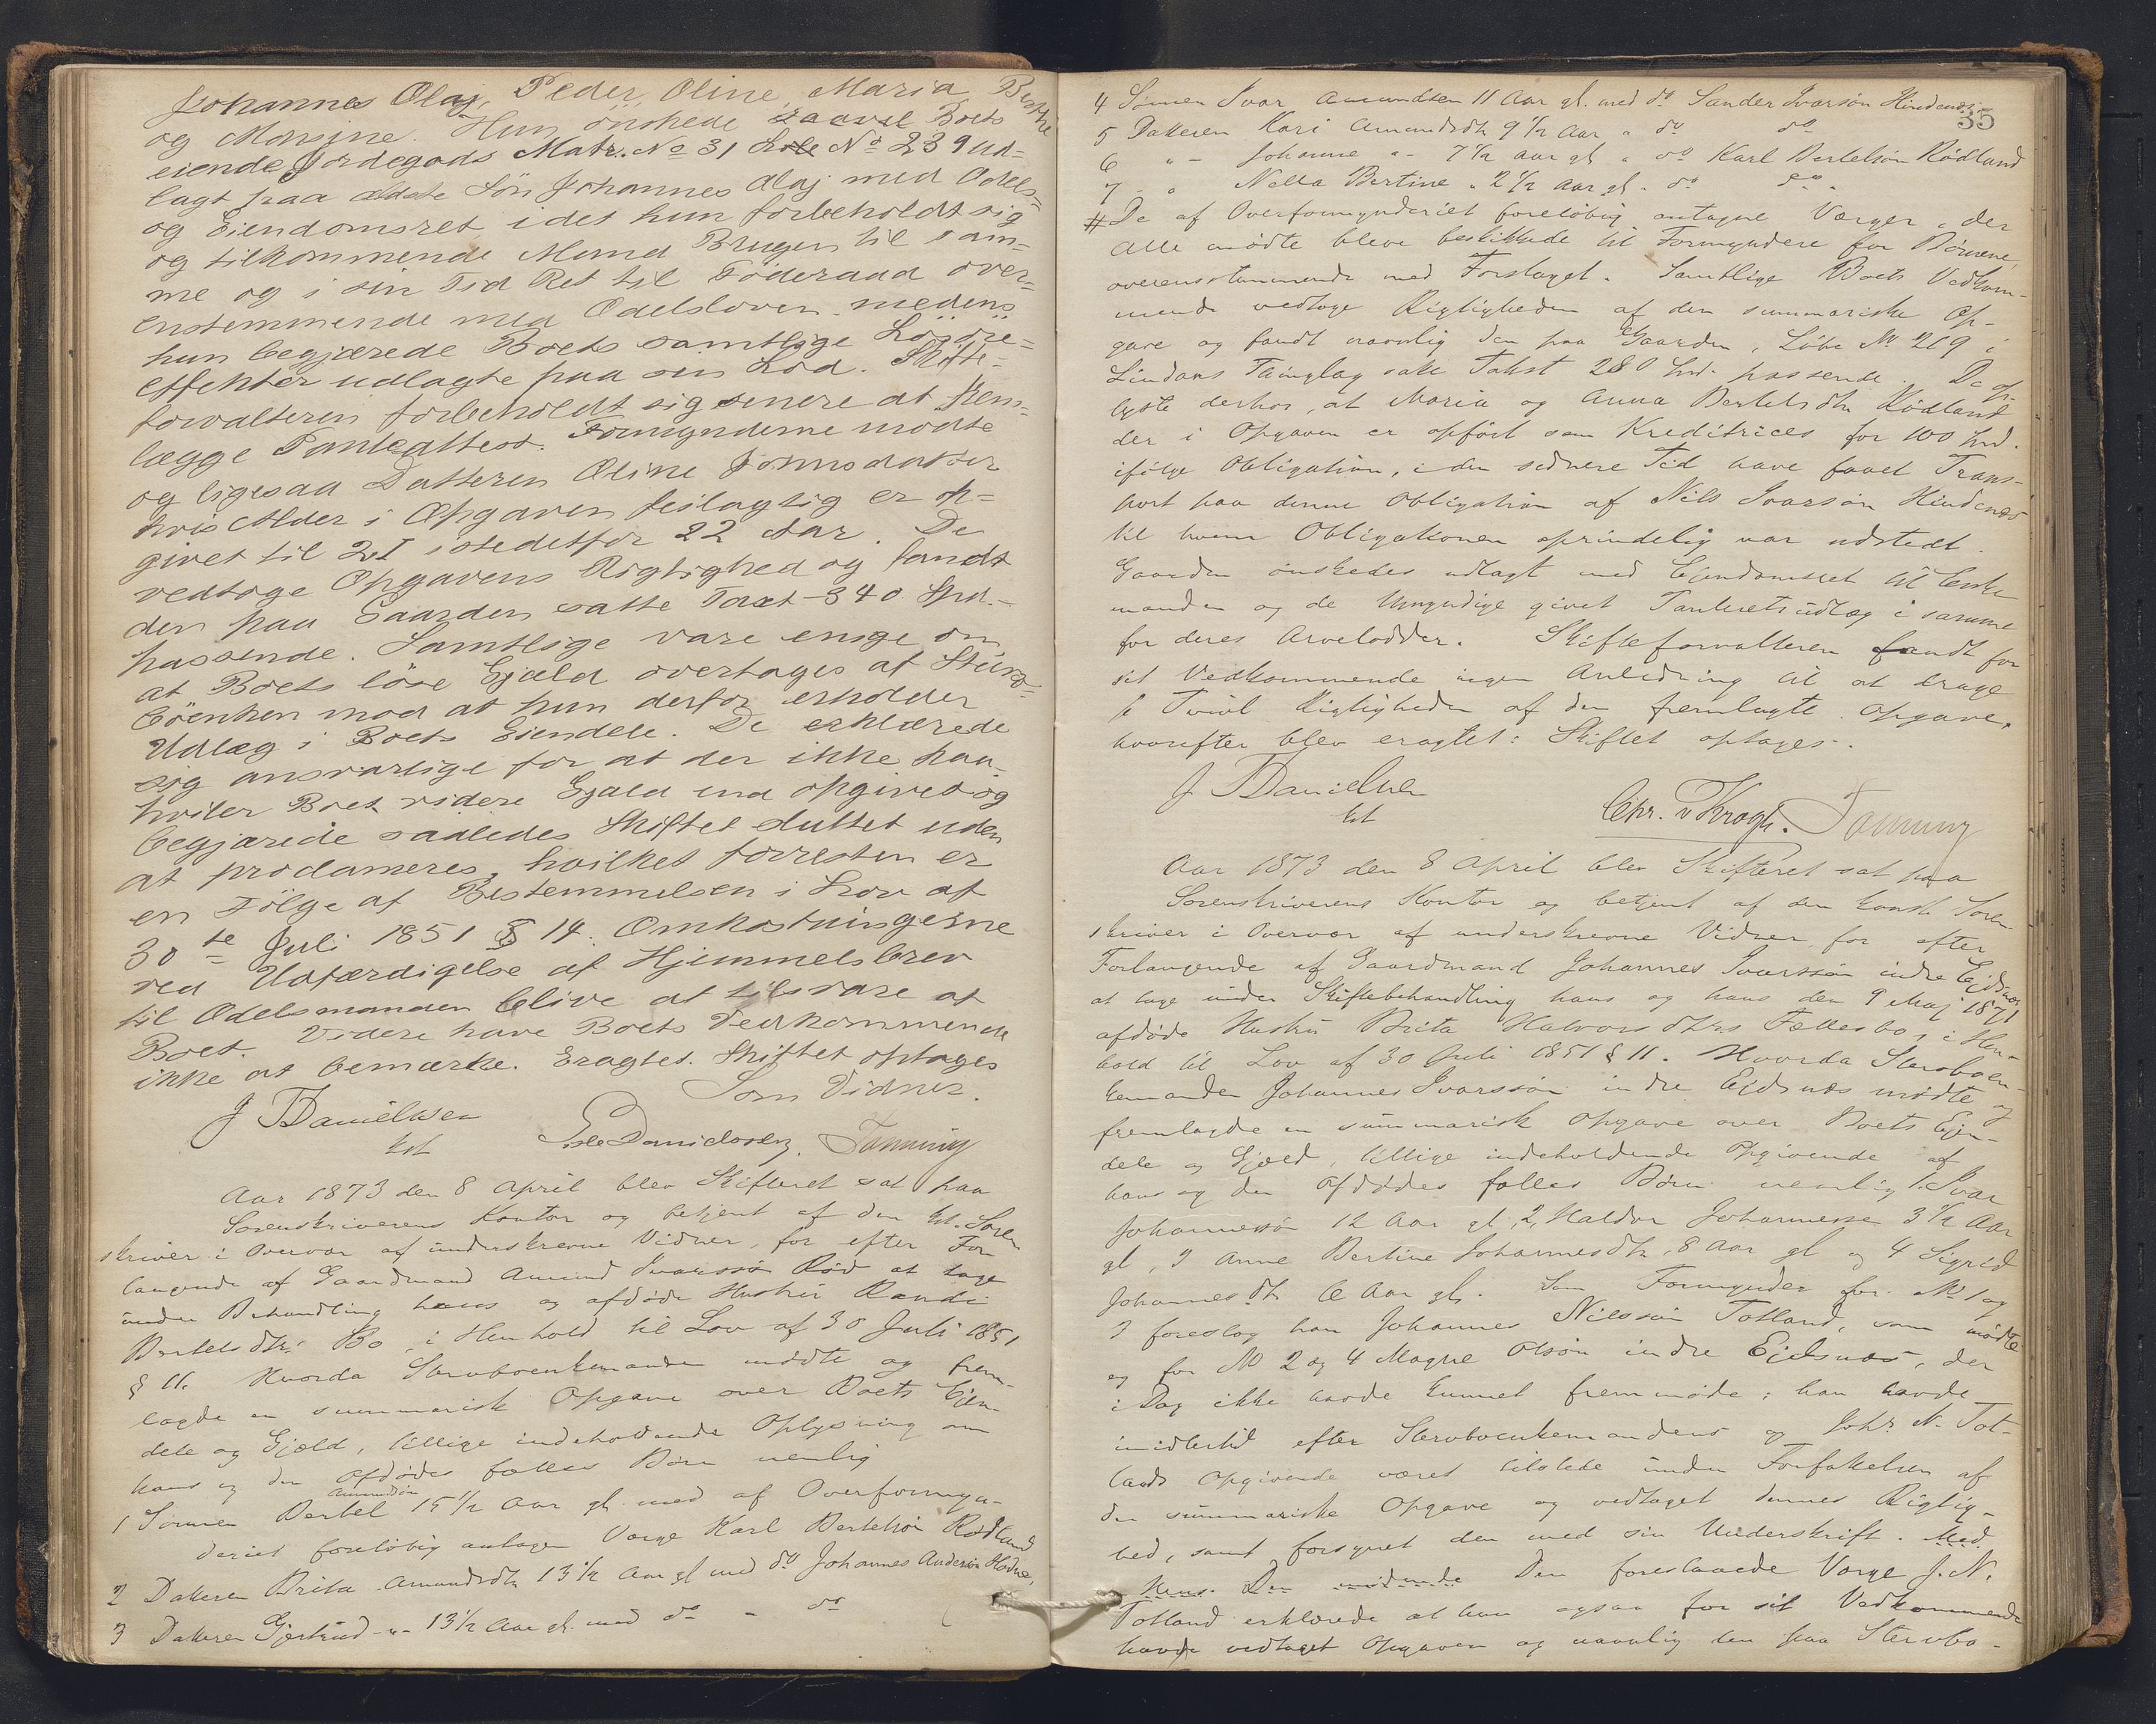 Johannes Olaj, Peder, Oline, Maria, Berthe
og Marsine. Hun ønskede saavel Boets
eiende Jordegods Matr. No 31 Lole No 239 ud-
lagt paa ældste Søn Johannes Olaj med Odels-
og Eiendomsret idet hun forbeholdt sig
og tilkommende Mand Brugen til sam-
me og i sin Tid Ret til Föderaad over-
enstemmende med Odelsloven medens
hun begjærede Boets samtlige Lösöre-
effekter udlagte paa sin Lod. Skifte-
forvalteren forbeholdt sig senere at frem-
lægge Panteattest. Formynderne mødte
og ligesaa Datteren Oline Johnsdatter
hvis Alder i Opgaven feilagtig er op-
givet til 21 istedetfor 22 Aar. De
vedtoge Opgavens Rigtighed og fandt
den paa Gaarden satte Taxt 340 Spd.
passende. Samtlige vare enige om
at Boets löse Gjæld overtages af Stürv-
böenken mod at hun derfor erholder
Udlæg i Boets Eiendele. De erklærede
sig ansvarlige for at der ikke paa-
hviler Boet videre Gjæld end opgivet og
begjærede saaledes Skiftet sluttet uden
at proclameres, hvilket forresten er
en Fölge af Bestemmelsen i Lov af
30te Juli 1851 § 14. Omkostningerne
ved Udfærdigelse af Hjemmelsbrev
til Odelsmanden blive at tilsvare af
Boet. Videre have Boets Vedkommende
ikke at bemærke. Eragtet. Skiftet optages
Som Vidner.
J Danielsen
kst
Danielsen. Tanning
Aar 1873 den 8 April blev Skifteret sat paa
Sorenskriverens Kontor og betjent af den kst. Soren
skriver i Overvær af underskrevne Vidner, for efter For
langende af Gaardmand Amund Ivarssön Rød at tage
under Behandling hans og afdøde Hustru Randi
Bertelsdtrs Bo, i Henhold til Lov af 30 Juli 1851
§ 11. Hvorda Stervboenkemanden mødte og frem-
lagde en summarisk Opgave over Boets Ejen-
dele og Gjæld, tillige indeholdende Oplysning om
hans og den Afdødes fælles Børn nemlig
1 Sønnen Bertel Amundsön 15 1/2 Aar gl. med af Overformyn-
deriet foreløbig antagen Værge Karl Bertelsön Rødland
2 Datteren Brita Amundsdtr 13 1/2 Aar gl med do Johannes Andersön Hodne,
3 Datteren Gjertrud -"- 13 1/2 Aar gl. med do - do
35
4 Sønnen Ivar Amundsen 11 Aar gl. med do Sander Ivarsön Hindenæs.
5 Datteren Kari Amundsdtr 9 1/2 Aar " do do
6 " - Johanne " - 7 1/2 Aar gl " do Karl Bertelsön Rödland
7 - " Nella Bertine " 2 1/2 Aar gl. " do do.
# De af Overformynderiet foreløbig antagne Værger, der
Alle mødte bleve beskikkede til Formyndere for Børnene,
overensstemmende med Forslaget. Samtlige Boets Vedkom-
mende vedtoge Rigtigheden af den summariske Op-
gave og fandt navnlig den paa Gaarden, Løbe No 209 i
Lindaas Thinglag satte Takst 280 Spd. passende. De op-
lyste derhos, at Maria og Anna Bertelsdtr Rødland
der i Opgaven er opført som Kreditrices for 100 Spd.
ifølge Obligation, i den senere Tid have faaet Trans-
port paa denne Obligation af Nils Ivarsön Hindenæs
til hvem Obligationen oprindelig var udstedt.
Gaarden ønskedes udlagt med Ejendomsret til Enke
manden og de Umyndige givet Panteretsudlæg i samme
for deres Arvelodder. Skifteforvalteren fandt for
sit Vedkommende ingen Anledning til at drage
i Tvivl Rigtigheden af den fremlagte Opgave,
hvorefter blev eragtet: Skiftet optages.
J Danielsen
kst
Chr. v Krogh. Tanning
Aar 1873 den 8 April blev Skifteret sat paa
Sorenskriverens Kontor og betjent af den konst. Soren
skriver i Overvær af underskrevne Vidner for efter
Forlangende af Gaardmand Johannes Ivarssön indre Eidsnæs
at tage under Skiftebehandling hans og hans den 9 Maj 1871
afdøde Hustru Brita Halvorsdtrs Fællesbo, i Hen-
hold til Lov af 30 Juli 1851 § 11. Hvorda Stervboen-
kemanden Johannes Ivarssön indre Eidsnæs mødte og
fremlagde en summarisk Opgave over Boets Ejen-
dele og Gjæld, tillige indeholdende Opgivende af
hans og den Afdødes fælles Børn nemlig 1. Ivar
Johannessön 12 Aar gl, 2, Haldor Johannessen 3 1/2 Aar
gl, 3 Anne Bertine Johannesdtr, 8 Aar gl og 4 Sigrid
Johannesdtr 6 Aar gl. Som Formynder for No 1 og
3 foreslog han Johannes Nilssön Totland, som mødte
og for No 2 og 4 Magne Olsön indre Eidsnæs, der
i Dag ikke havde kunnet fremmøde; han havde
imidlertid efter Stervboenkemandens og Johs N. Tot-
lands Opgivende været tilstede under Forfattelsen af
den summariske Opgave og vedtaget dennes Rigtig-
hed, samt forsynet den med sin Underskrift. Med
Hens. Den mødende Den foreslaaede Værge J. N.
Totland erklærede at han ogsaa for sit Vedkommende
havde vedtaget Opgaven og navnlig den paa Stervbo-